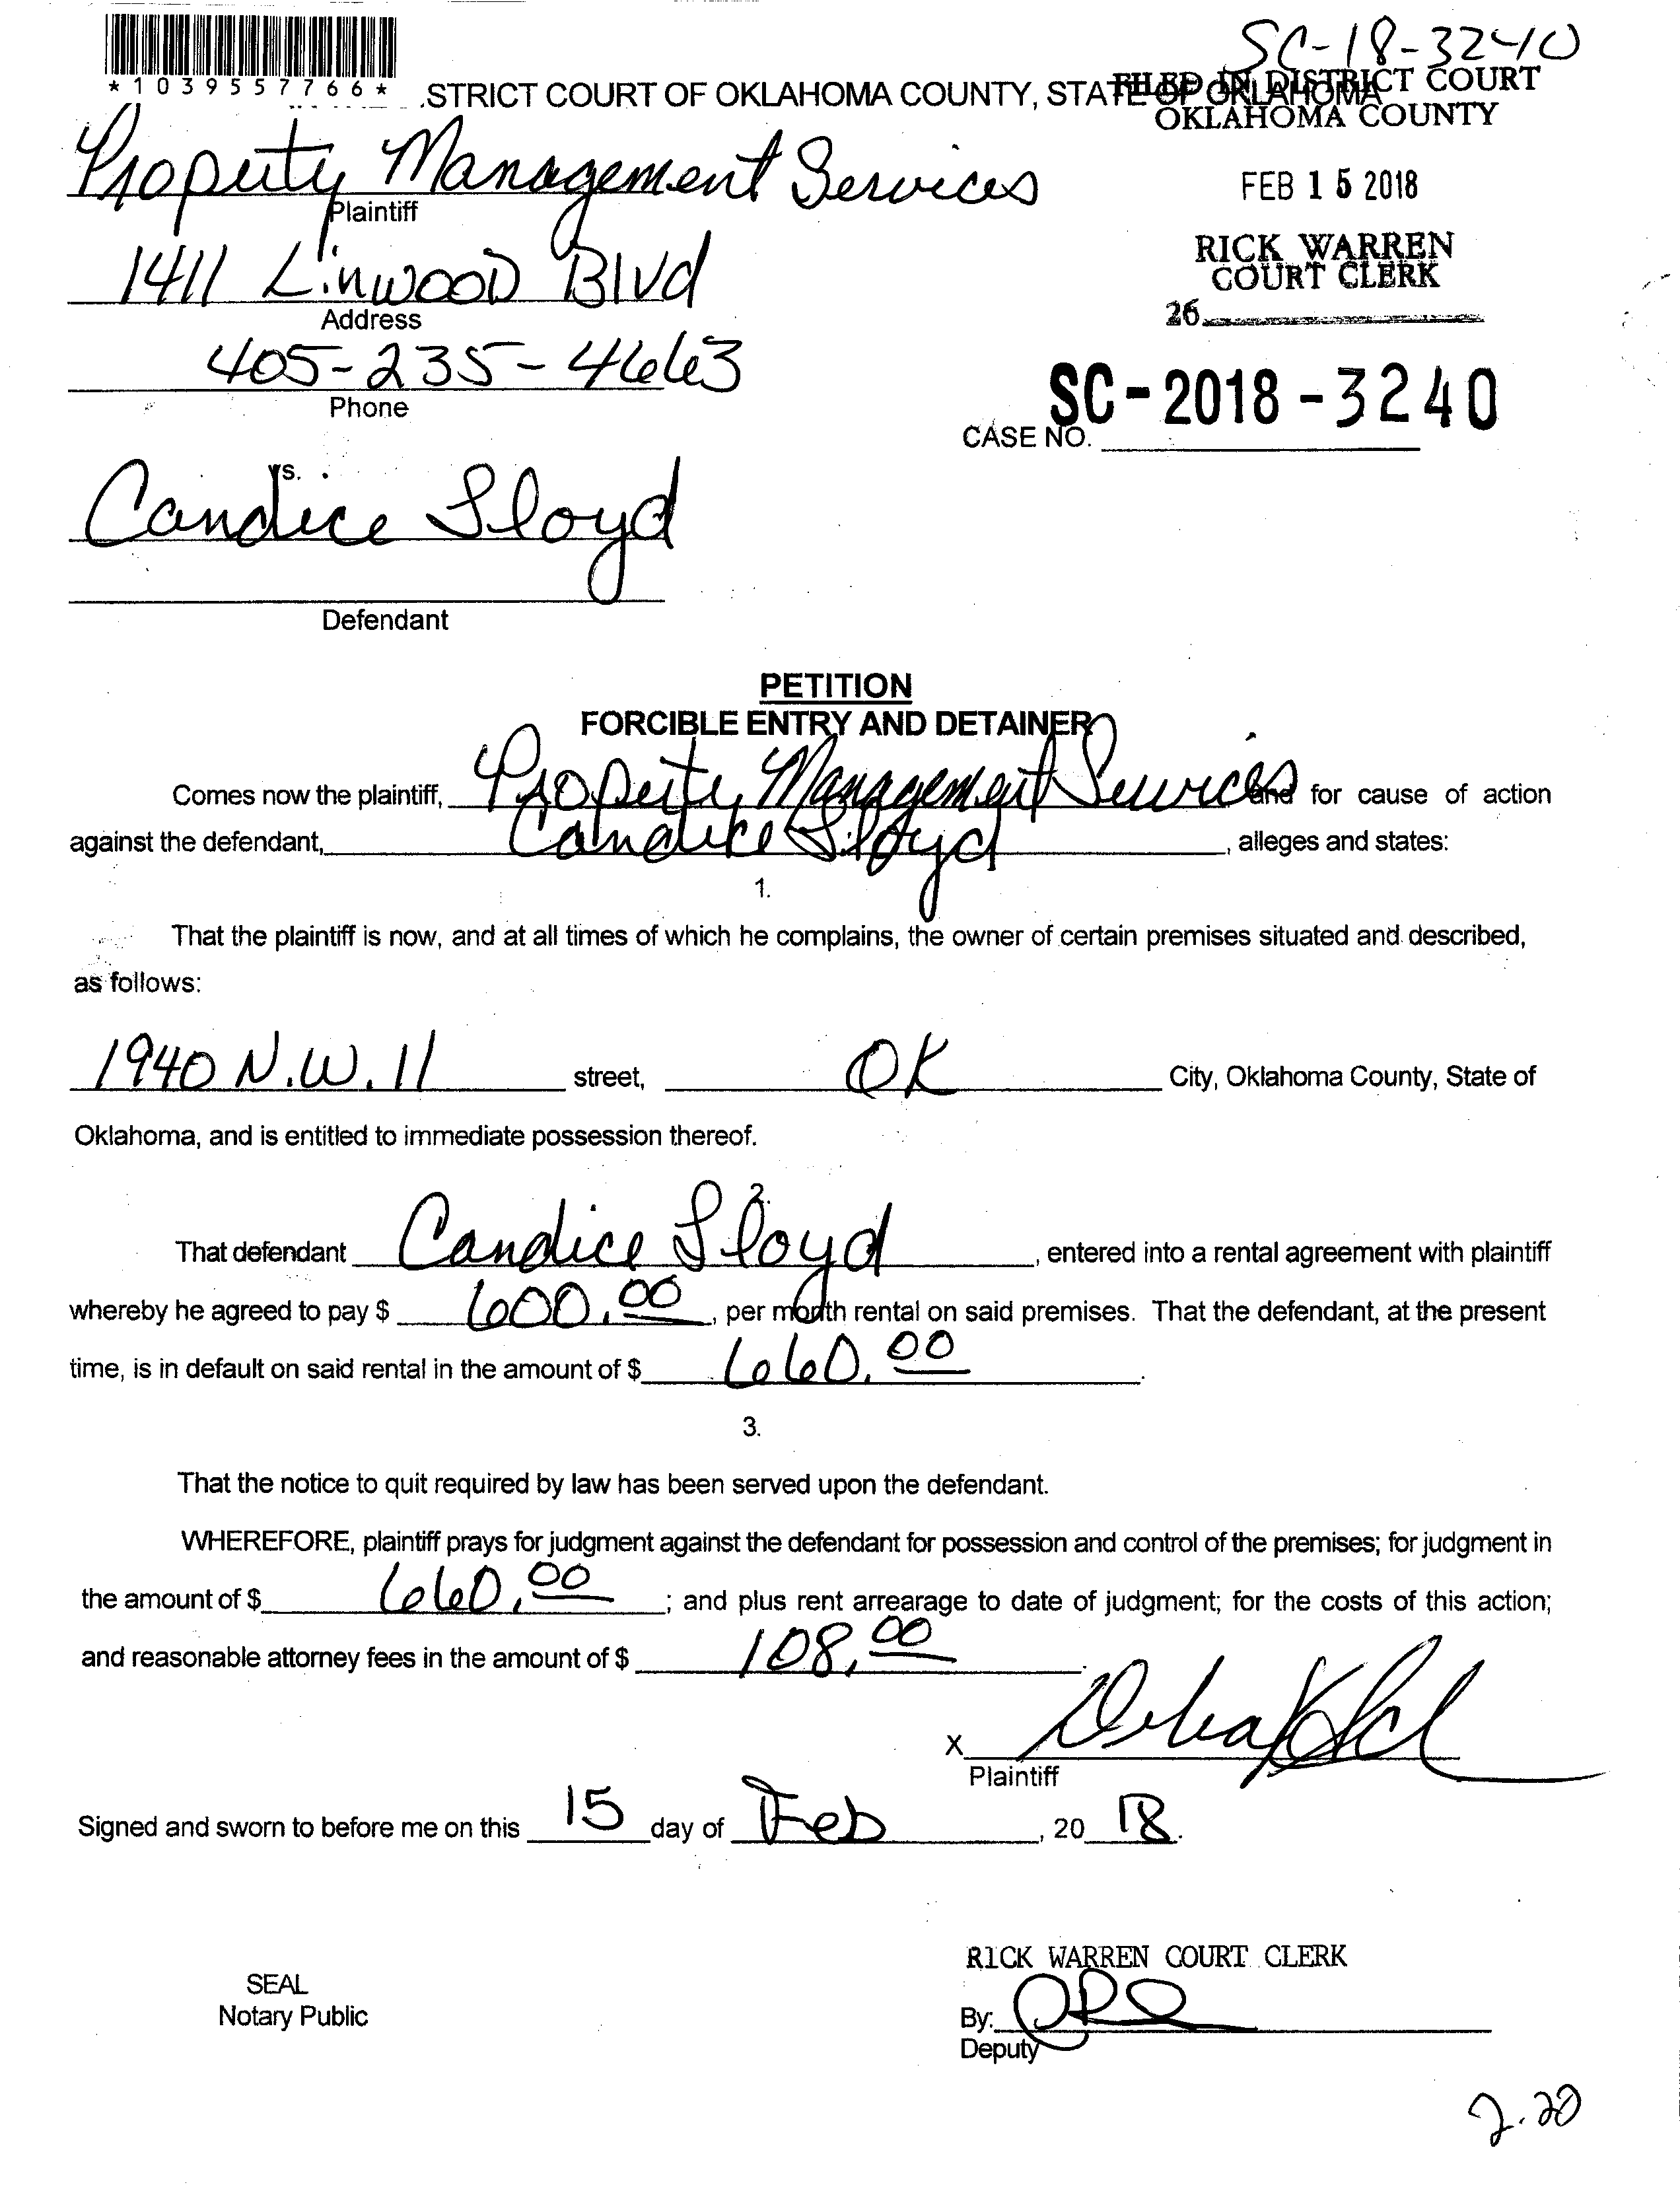 SC-18-3240
*1039557766*
.STRICT COURT OF OKLAHOMA COUNTY, STATE OF OKLAHOMA
FILED IN DISTRICT COURT
OKLAHOMA COUNTY
Property Management Services
Plaintiff
FEB 15 2018
RICK WARREN
COURT CLERK
1411 Linwood Blvd
Address
26
405-235-4663
Phone
SC-2018-3240
CASE NO.
vs.
Candice Lloyd
Defendant
PETITION
FORCIBLE ENTRY AND DETAINER
Comes now the plaintiff, Property Management Services and for cause of action
against the defendant, Candice Lloyd, alleges and states:
1.
That the plaintiff is now, and at all times of which he complains, the owner of certain premises situated and described,
as follows:
1940 N.W. 11 street, OK City, Oklahoma County, State of
Oklahoma, and is entitled to immediate possession thereof.
2.
That defendant Candice Lloyd, entered into a rental agreement with plaintiff
whereby he agreed to pay $ 600.00, per month rental on said premises. That the defendant, at the present
time, is in default on said rental in the amount of $ 660.00.
3.
That the notice to quit required by law has been served upon the defendant.
WHEREFORE, plaintiff prays for judgment against the defendant for possession and control of the premises; for judgment in
the amount of $ 660.00; and plus rent arrearage to date of judgment; for the costs of this action;
and reasonable attorney fees in the amount of $ 108.00.
X
Plaintiff
Signed and sworn to before me on this 15 day of Feb, 20 18.
RICK WARREN COURT CLERK
SEAL
Notary Public
By:
Deputy
2.20